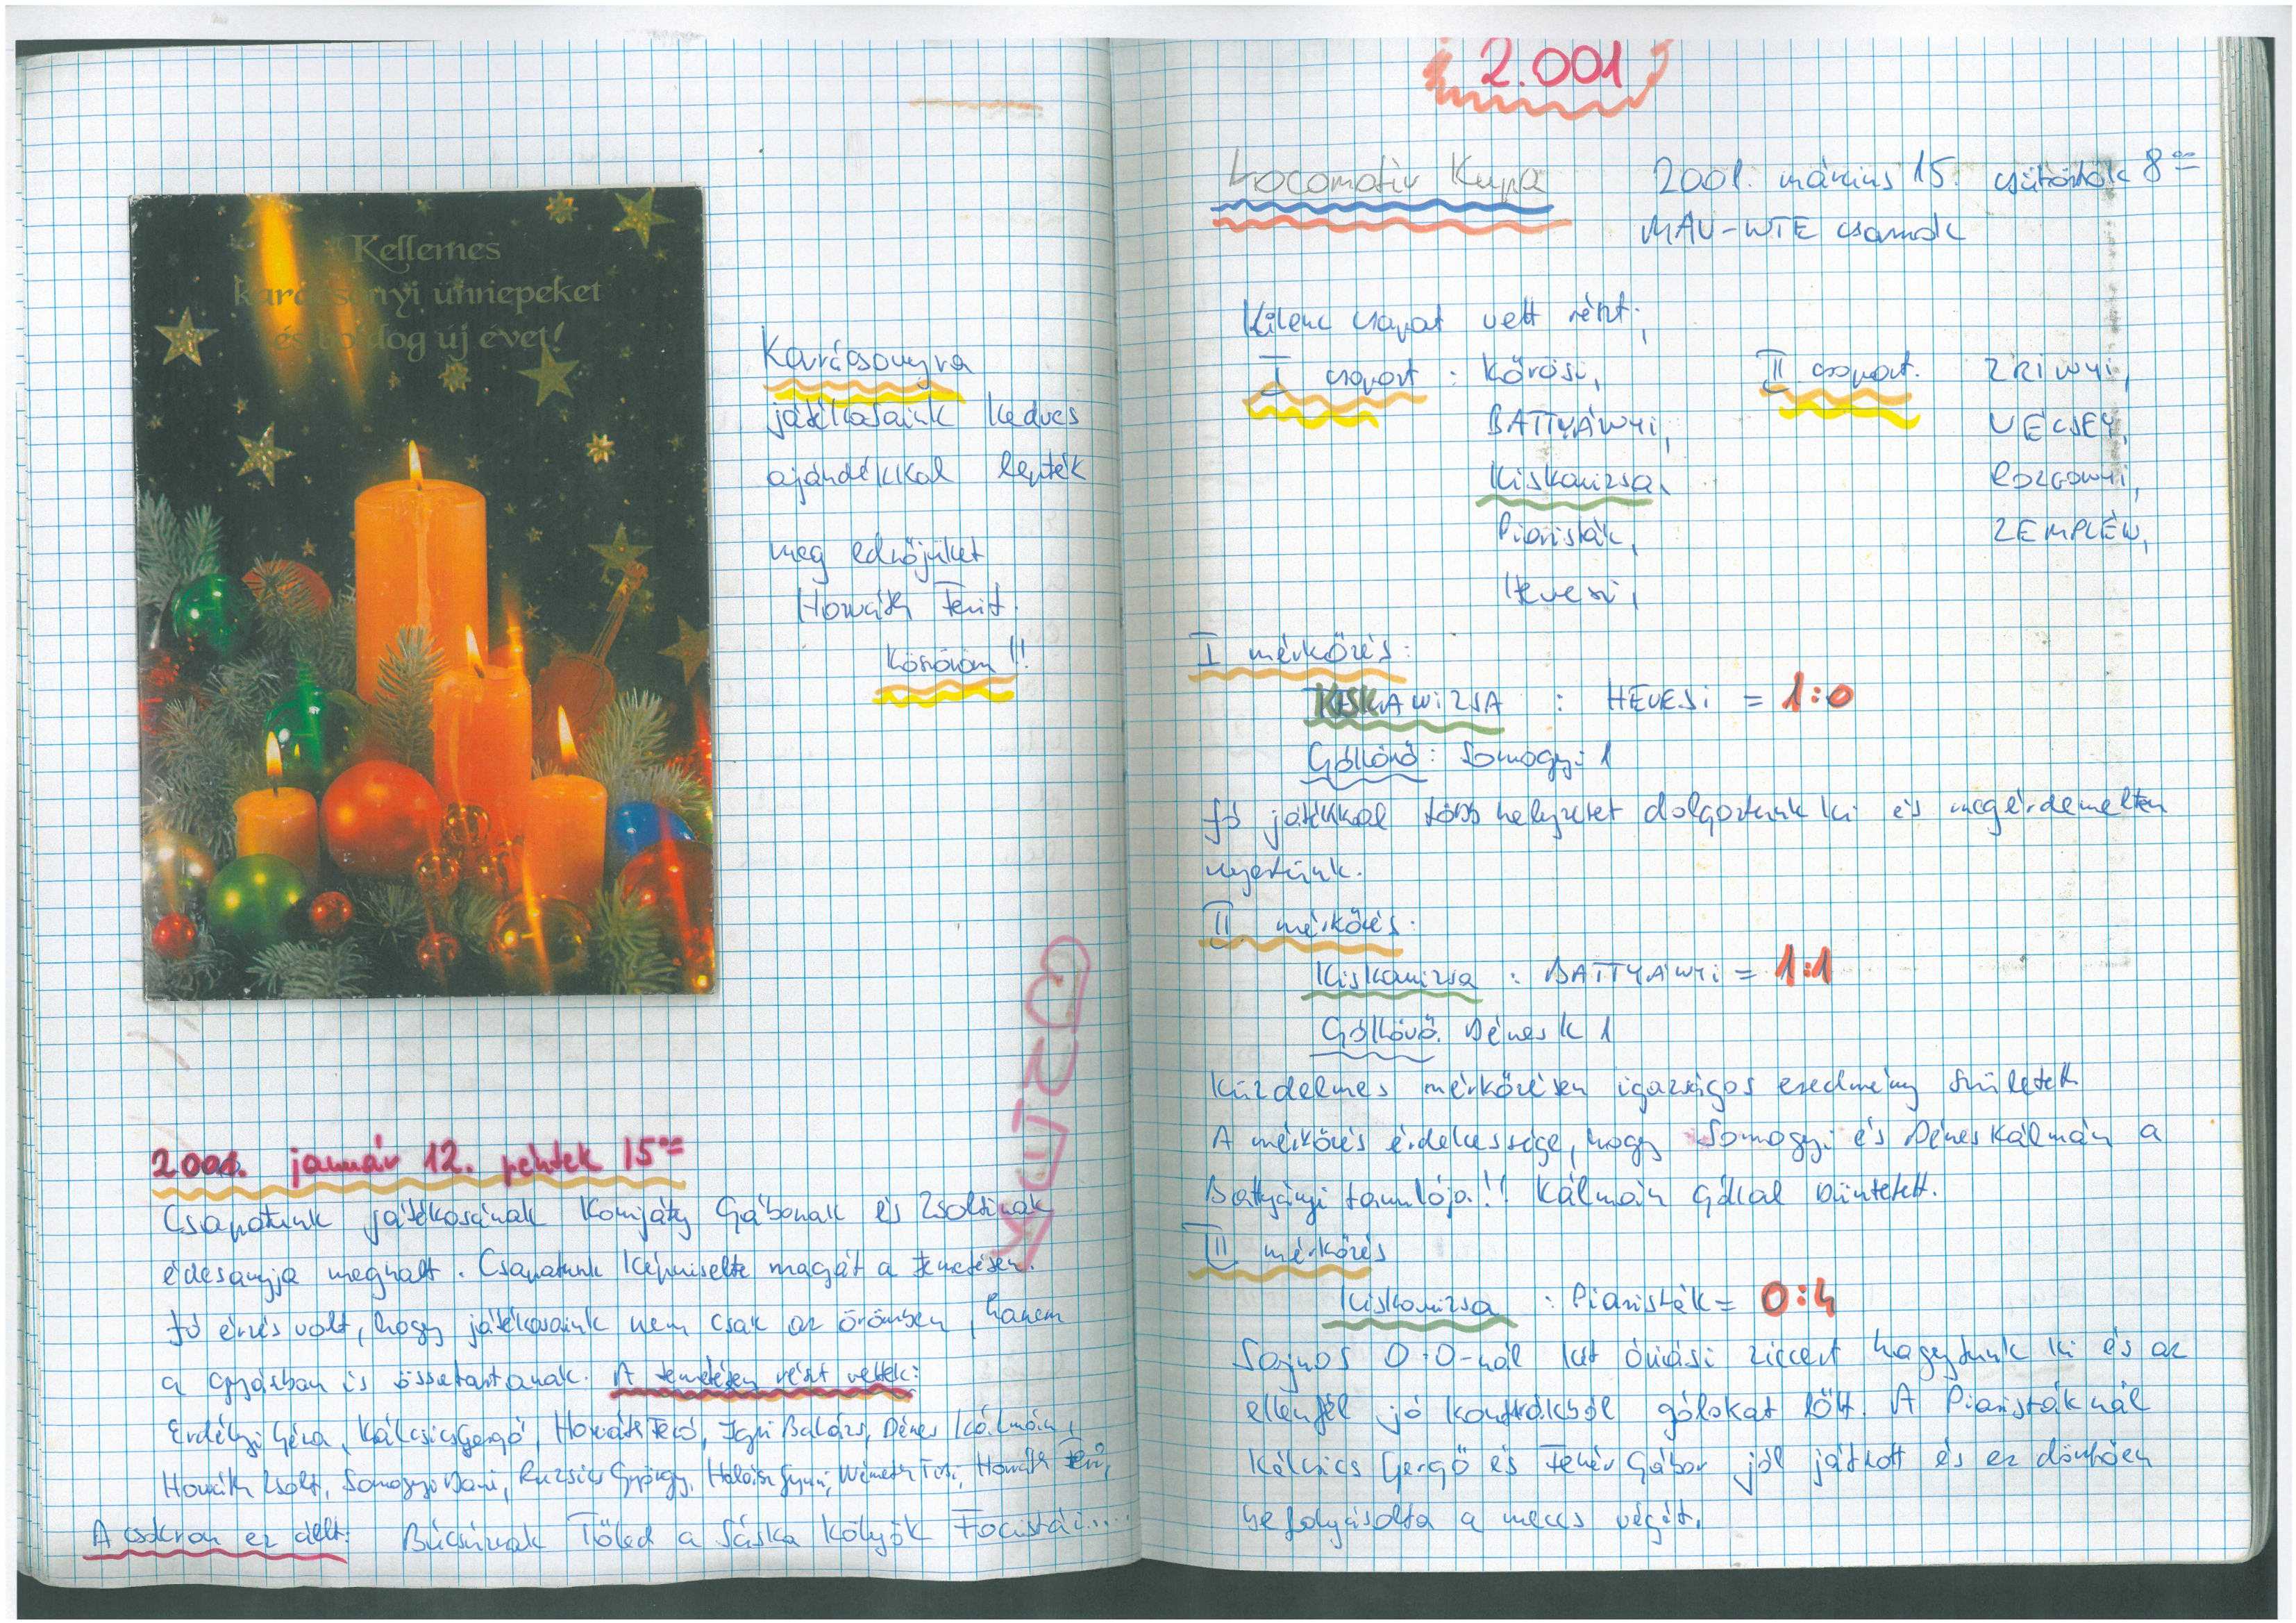 Kellemes
karácsonyi ünnepeket
és boldog új évet!
Karácsonyra
játékosaink kedves
ajándékkal lepték
meg edzőjüket
Horváth Ferit.
Köszönöm!!
2001. január 12. péntek 15⁰⁰
Csapatunk játékosának Komjáty Gábornak és Zsoltinak
édesanyja meghalt. Csapatunk képviselte magát a temetésen.
Jó érzés volt, hogy játékosaink nem csak az örömben, hanem
a gyászban is összetartanak. A temetésen részt vettek:
Erdélyi Géza, Kálcsics Gergő, Horváth Feró, Igri Balázs, Dénes Kálmán,
Horváth Zsolt, Somogyi Dani, Ruzsics György, Németh Foti, Horváth
A csokron ez állt: Búcsúznak Tőled a Sáska Kölyök Focistái....
2.001
Locomotiv Kupa 2001. március 15. csütörtök 8⁰⁰
MÁV-NTE csarnok
Kilenc csapat vett részt;
I csoport: Kőrösi, II csoport. ZRINYI,
BATTYÁNYI, VÉCSEY,
Kiskanizsa, ROZGONYI,
Piaristák, ZEMPLÉN,
Hevesi,
I mérkőzés:
KISKANIZSA : HEVESI = 1:0
Góllövő: Somogyi 1
Jó játékkal több helyzetet dolgoztunk ki és megérdemelten
nyertünk.
II mérkőzés.
Kiskanizsa : BATTYÁNYI = 1:1
Góllövő. Dénes K 1
Küzdelmes mérkőzésen igazságos eredmény született
A mérkőzés érdekessége, hogy Somogyi és Dénes Kálmán a
Battyányi tanulója!! Kálmán góllal büntetett.
III mérkőzés
Kiskanizsa : Piaristák = 0:4
Sajnos 0:0-nál két óriási ziccert hagytunk ki és az
ellenfél jó kontrákból gólokat lőtt. A Piaristáknál
Kálcsics Gergő és Fehér Gábor jól játszott és ez döntően
befolyásolta a meccs végét.